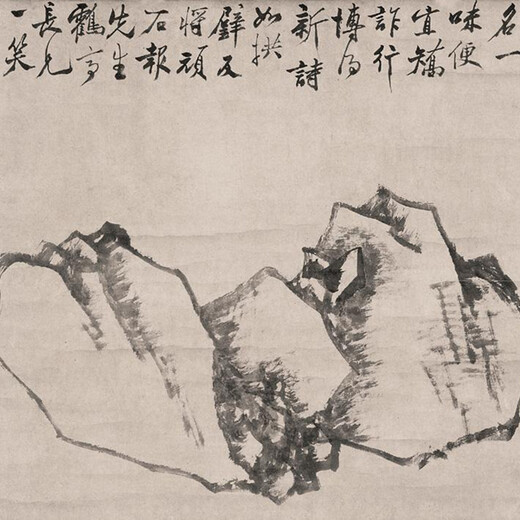 名一
味便
宜矯
詐行
博得
新詩
如拱
璧反
將頑
石報
先生
鶴亭
長兄
一笑